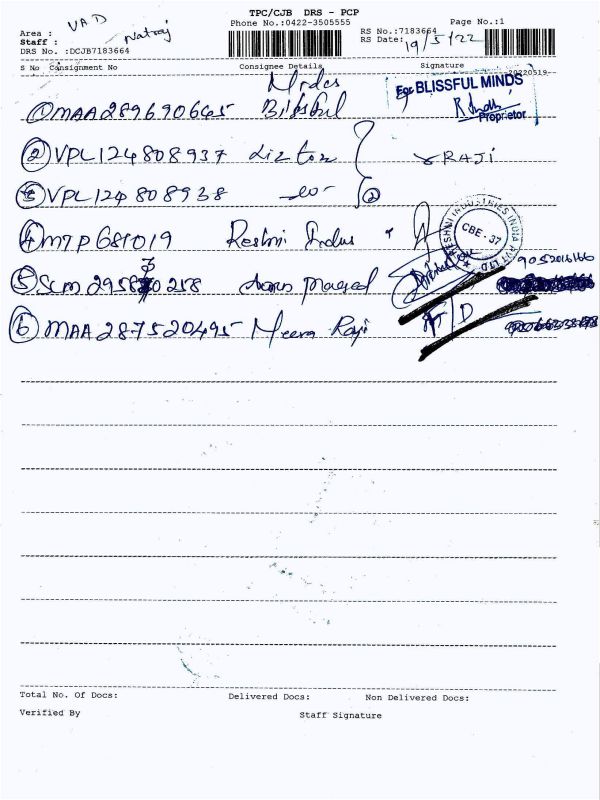 TPC/CJB DRS - PCP
Phone No.:0422-3505555
Page No.:1
Area : VAD
Staff : Natraj
DRS No. :DCJB7183664
RS No.:7183664
RS Date: 19/5/22
S No Consignment No Consignee Details Signature
20220519
① MAA289690645
For BLISSFUL MINDS
Proprietor
② VPL124808937
RAJI
③ VPL124808938 -do- ②
④ MTP681019 Reshmi Indus
RESHMI INDUSTRIES INDIA PVT LTD
CBE - 37
⑤
9052016166
⑥ MAA287520495 Meera Raji
Total No. Of Docs: Delivered Docs: Non Delivered Docs:
Verified By Staff Signature